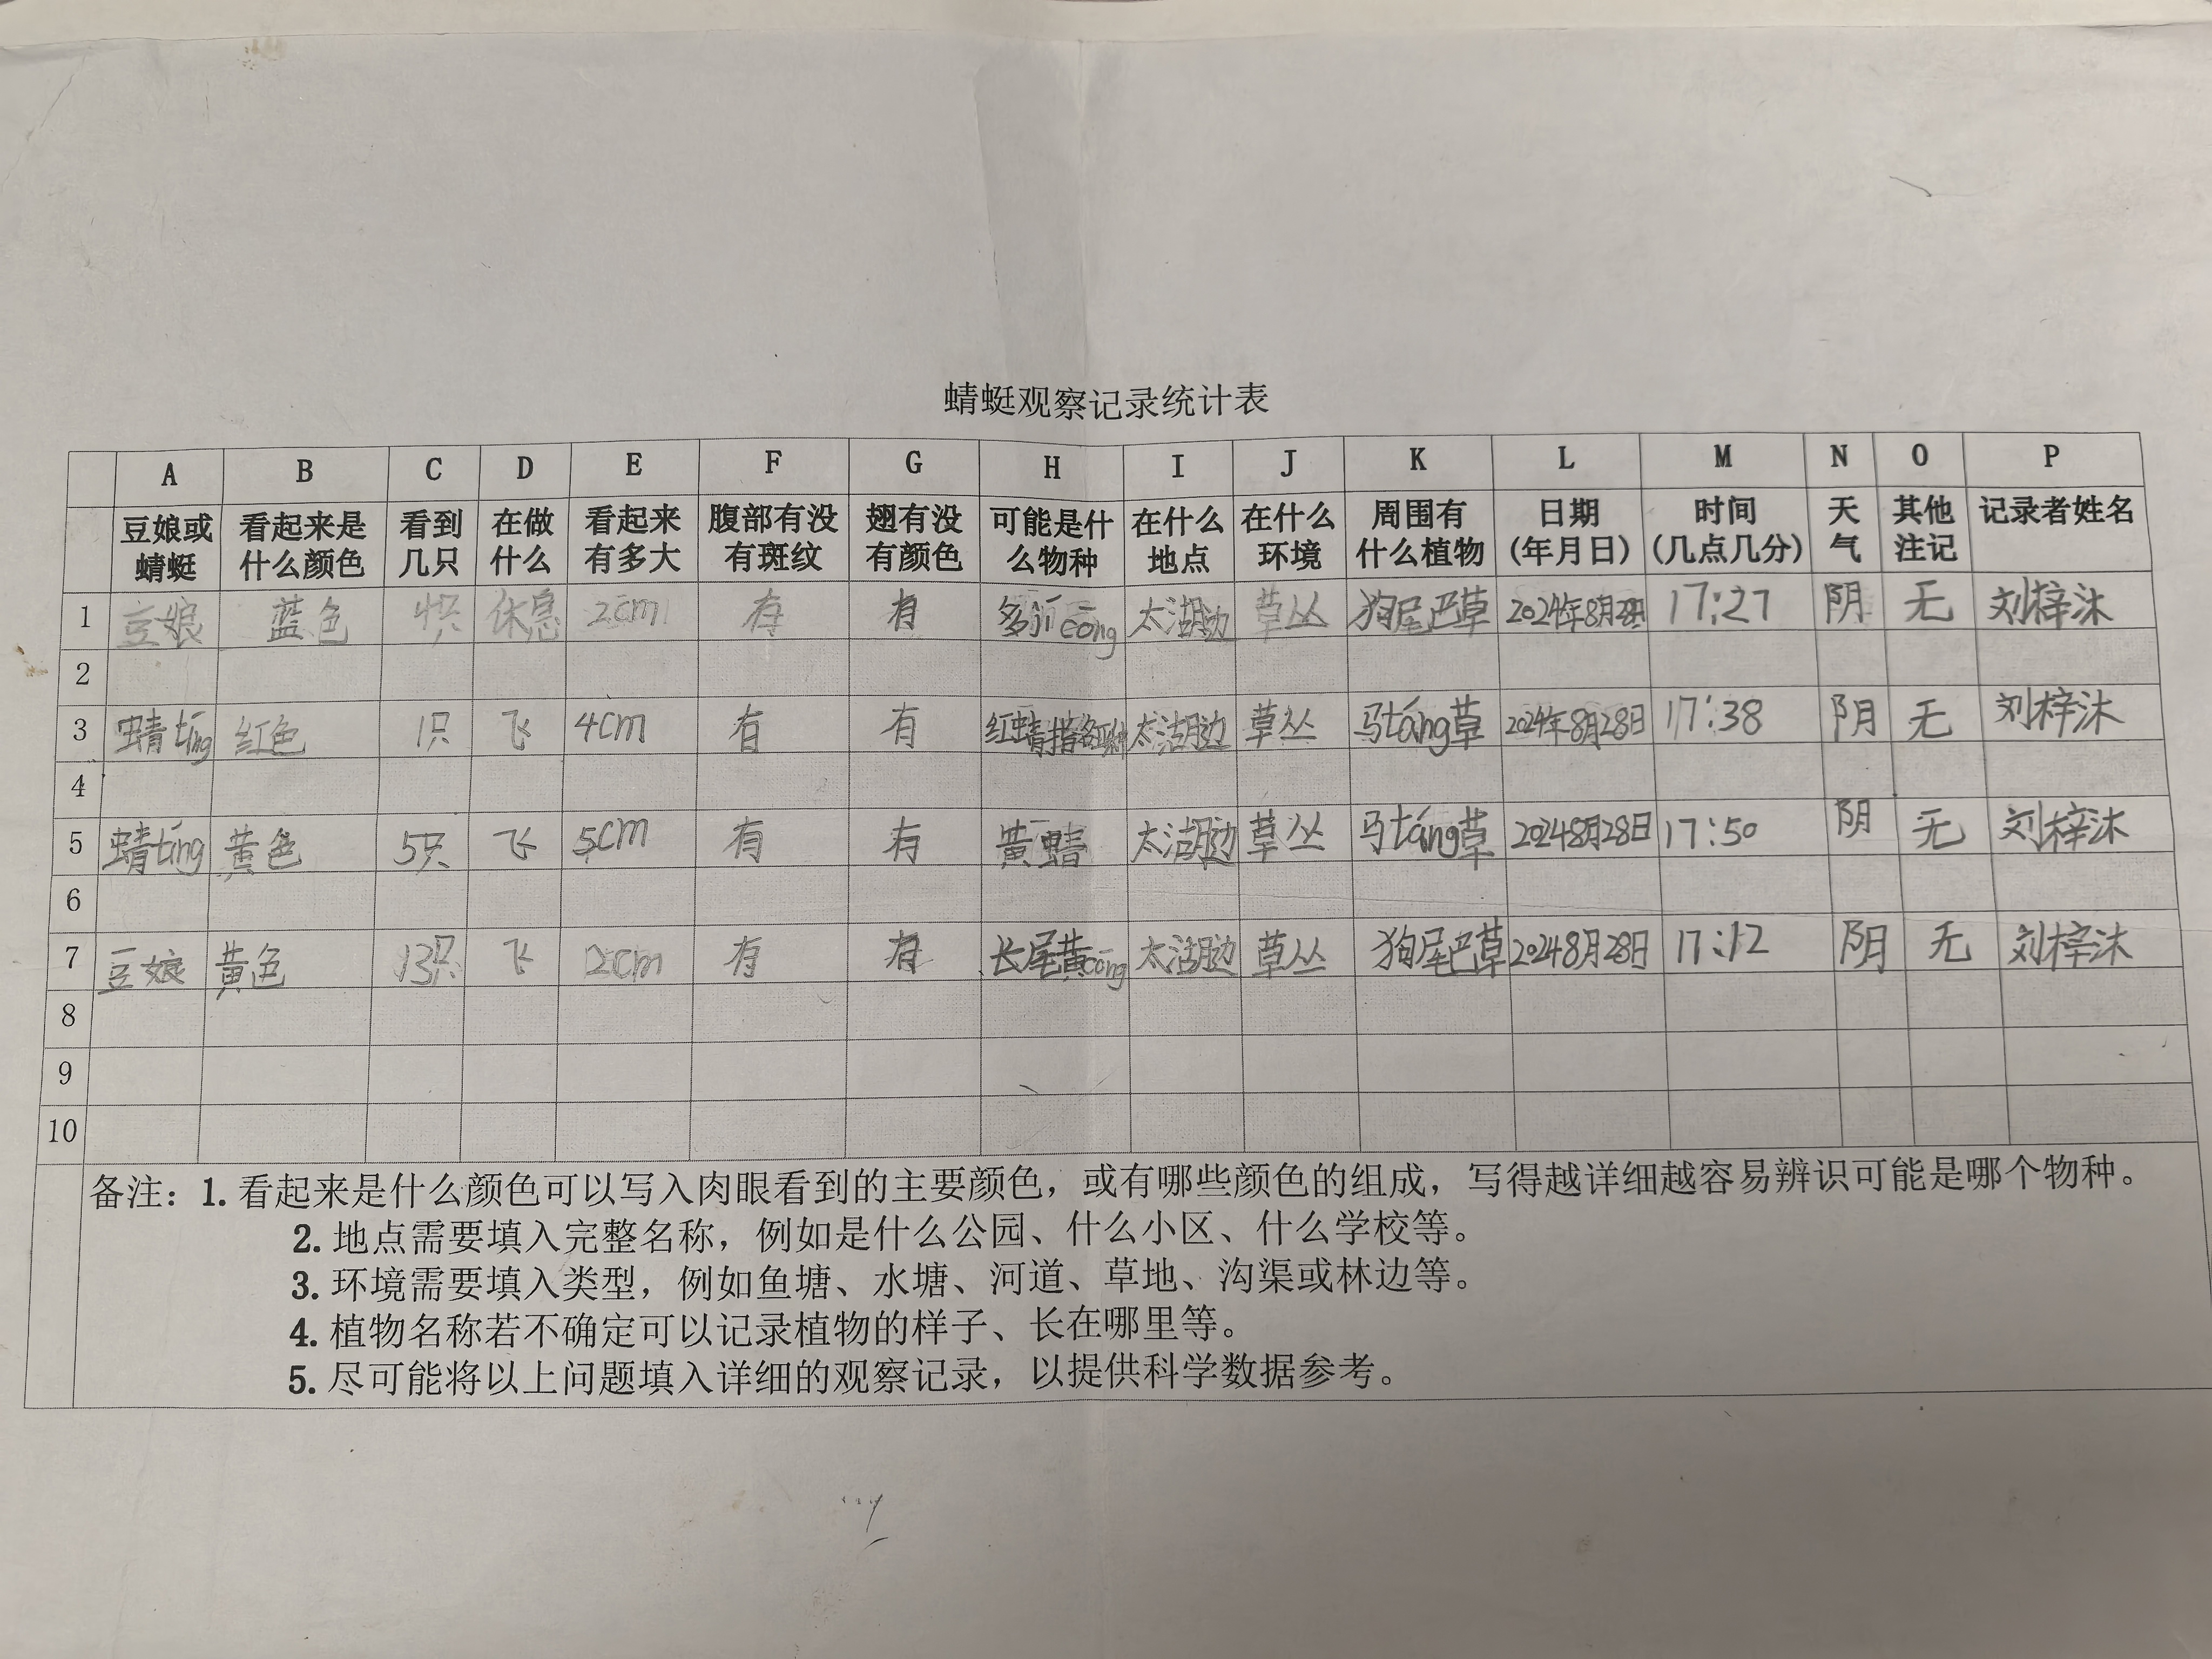 蜻蜓观察记录统计表
A B C D E F G H I J K L M N O P
豆娘或蜻蜓 看起来是什么颜色 看到几只 在做什么 看起来有多大 腹部有没有斑纹 翅有没有颜色 可能是什么物种 在什么地点 在什么环境 周围有什么植物 日期(年月日) 时间(几点几分) 天气 其他注记 记录者姓名
1 豆娘 蓝色 休息 2cm 有 有 cōng 太湖边 草丛 狗尾巴草 2024年8月28日 17:27 阴 无 刘梓沐
2
3 蜻tíng 红色 1只 飞 4cm 有 有 红蜻 太湖边 草丛 马táng草 2024年8月28日 17:38 阴 无 刘梓沐
4
5 蜻tíng 黄色 5只 飞 5cm 有 有 黄蜻 太湖边 草丛 马táng草 20248月28日 17:50 阴 无 刘梓沐
6
7 豆娘 黄色 13只 飞 2cm 有 有 长尾黄cōng 太湖边 草丛 狗尾巴草 20248月28日 17:12 阴 无 刘梓沐
8
9
10
备注：1. 看起来是什么颜色可以写入肉眼看到的主要颜色，或有哪些颜色的组成，写得越详细越容易辨识可能是哪个物种。
2. 地点需要填入完整名称，例如是什么公园、什么小区、什么学校等。
3. 环境需要填入类型，例如鱼塘、水塘、河道、草地、沟渠或林边等。
4. 植物名称若不确定可以记录植物的样子、长在哪里等。
5. 尽可能将以上问题填入详细的观察记录，以提供科学数据参考。